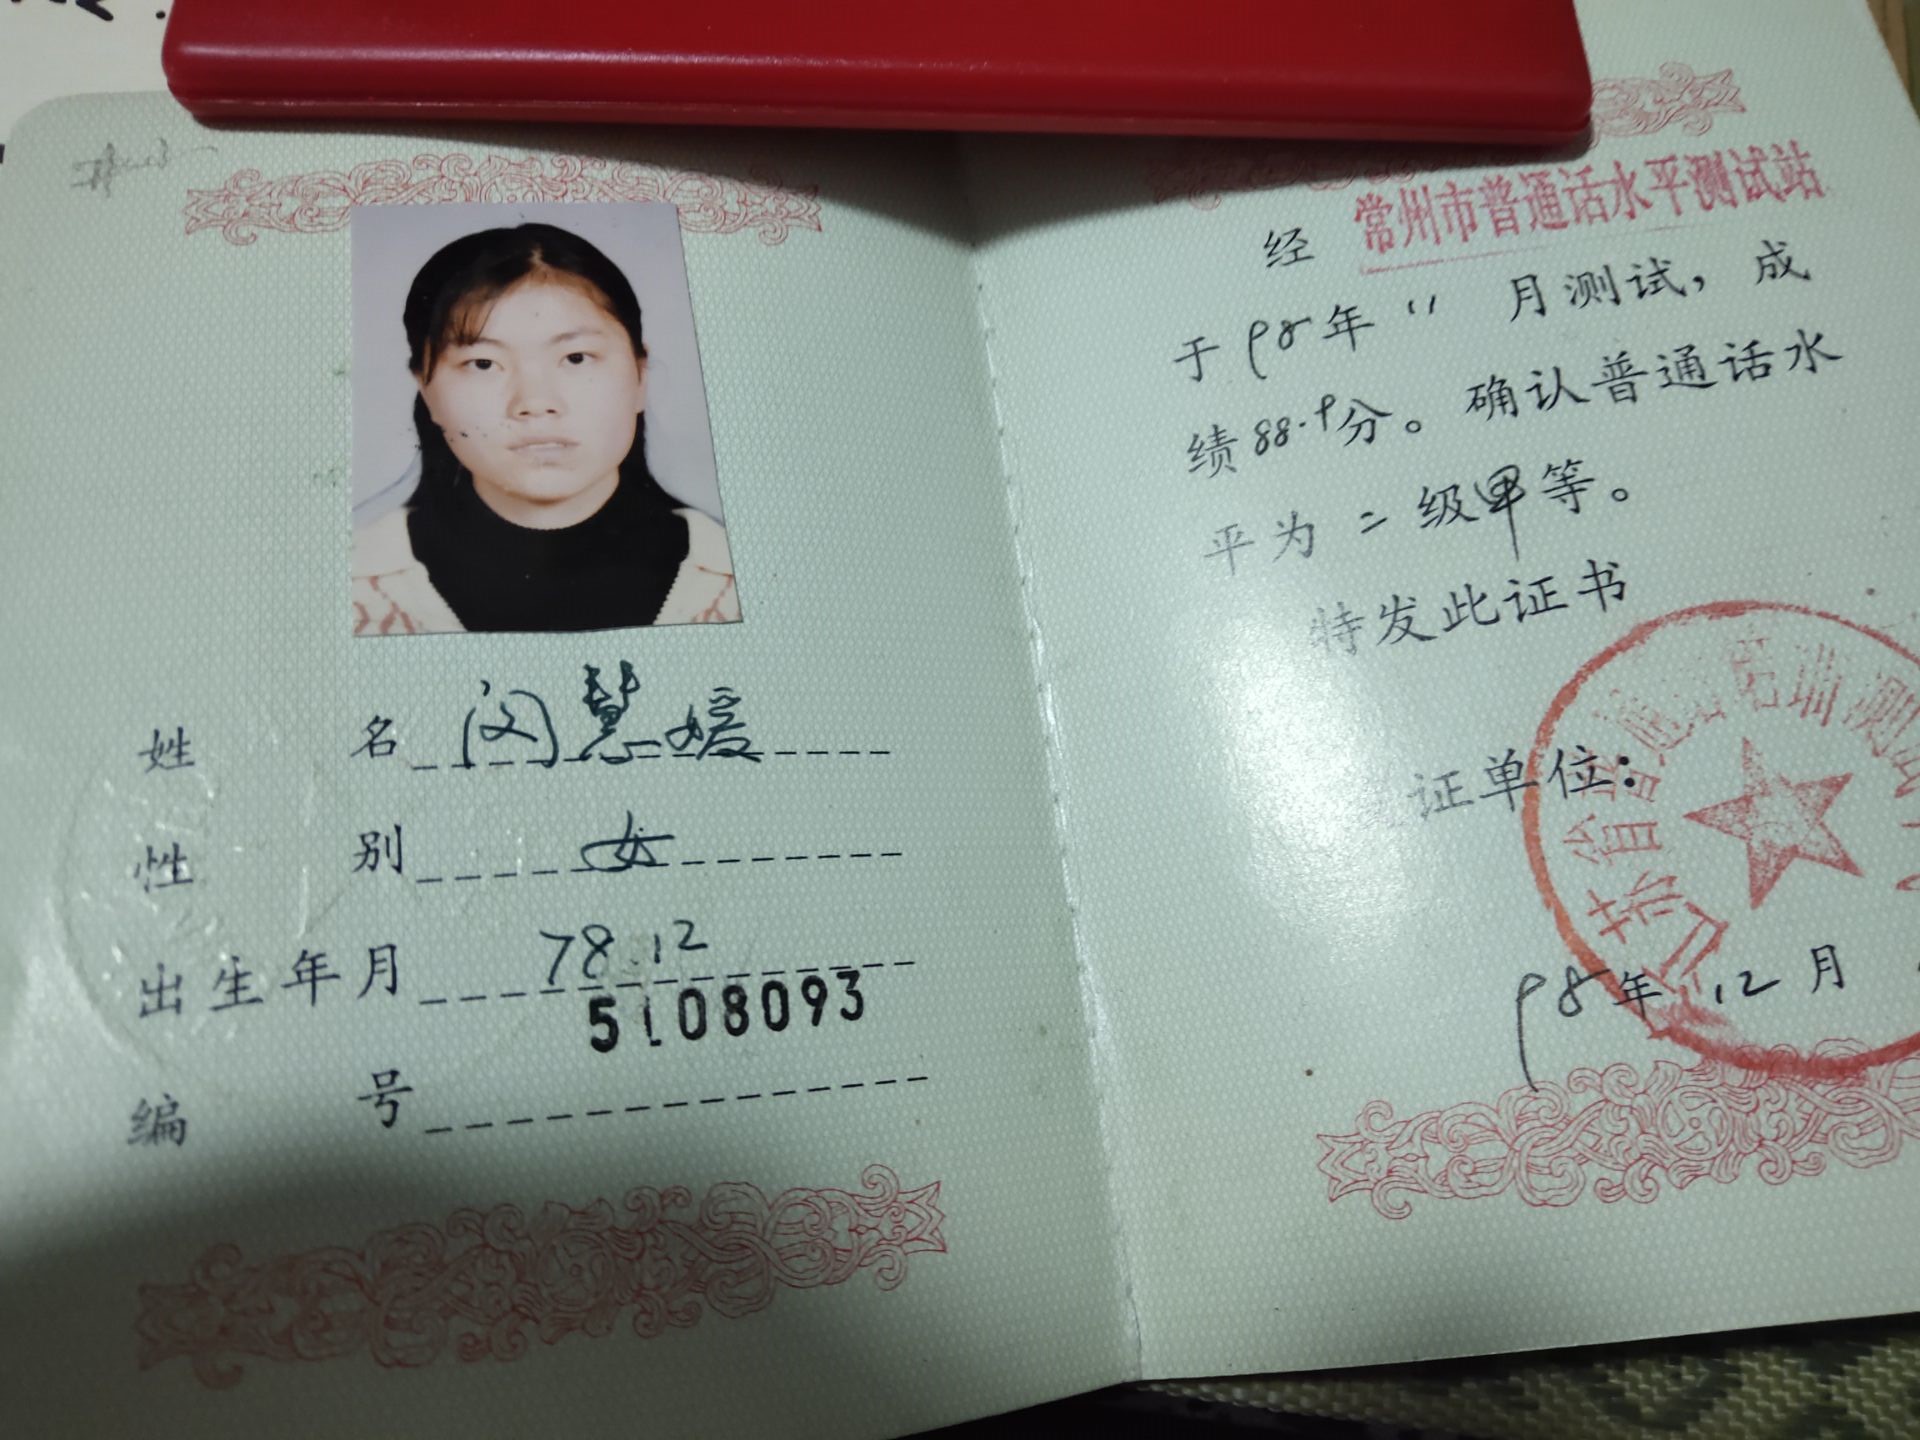 姓名 闵慧媛
性别 女
出生年月 78.12
5108093
编号
经 常州市普通话水平测试站
于98年11月测试，成
绩88.9分。确认普通话水
平为二级甲等。
特发此证书
证单位：
98年12月